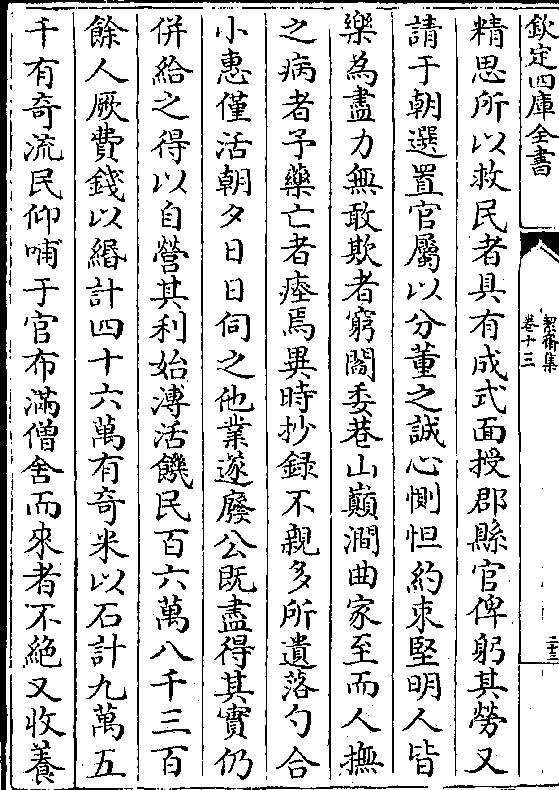 欽定四庫全書
絜齋集
卷十三
二十三
精思所以救民者具有成式面授郡縣官俾躬其勞又
請于朝選置官屬以分董之誠心惻怛約束堅明人皆
樂為盡力無敢欺者窮閻委巷山巔澗曲家至而人撫
之病者予藥亡者瘞焉異時抄録不親多所遺落勺合
小惠僅活朝夕日日伺之他業遂廢公既盡得其實仍
併給之得以自營其利始溥活饑民百六萬八千三百
餘人厥費錢以緡計四十六萬有奇米以石計九萬五
千有奇流民仰哺于官布滿僧舍而來者不絶又收養